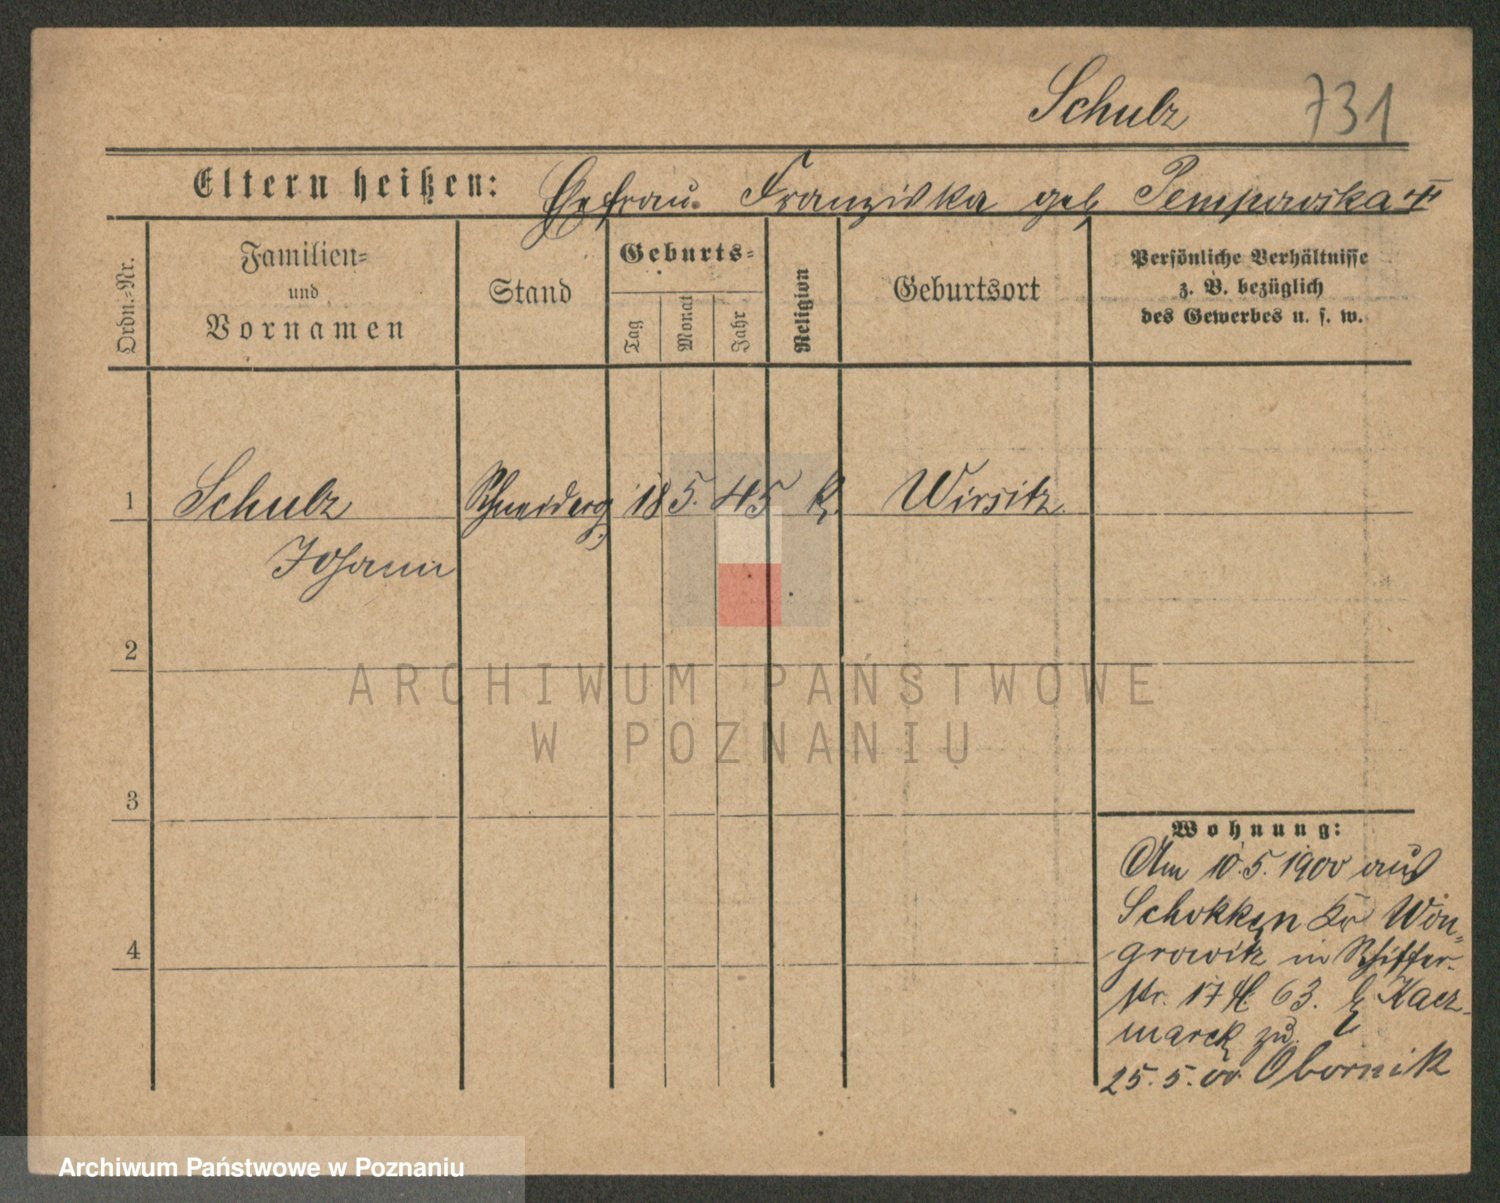 Schulz 731
Eltern heißen: Ehefrau Franziska geb Pempowska †
Ordn.-Nr.
Familien-
und
Vornamen
Stand
Geburts-
Tag
Monat
Jahr
Religion
Geburtsort
Persönliche Verhältnisse
z. B. bezüglich
des Gewerbes u. s. w.
1 Schulz Schneiderg. 18 5. 45 k. Wirsitz
Johann
2
3
4
Wohnung:
Am 10.5.1900 aus
Schokken Kr Won-
growitz in Schiffer-
str. 17 63. b Kacz-
marek zu.
25.5.00 Obornik
ARCHIWUM PAŃSTWOWE
W POZNANIU
Archiwum Państwowe w Poznaniu